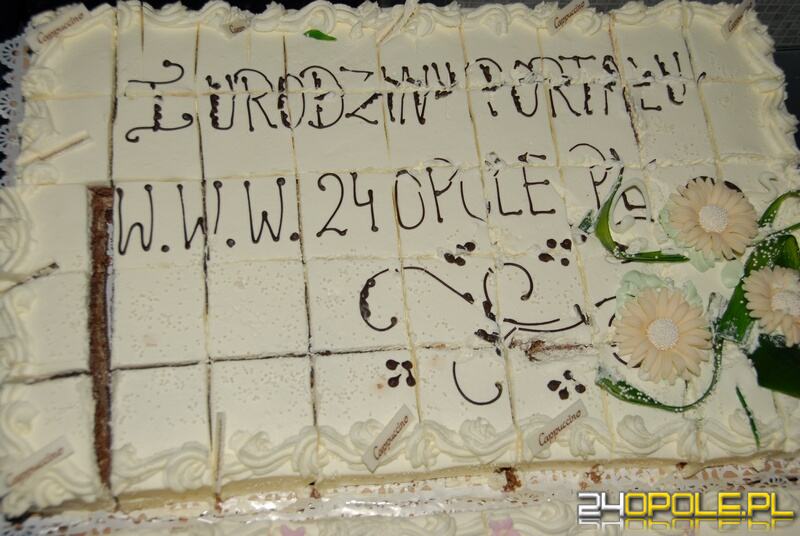 Cappuccino
Cappuccino
I URODZINY PORTALU
W.W.W. 24OPOLE PL
Cappuccino
Cappuccino
Cappuccino
24OPOLE.PL